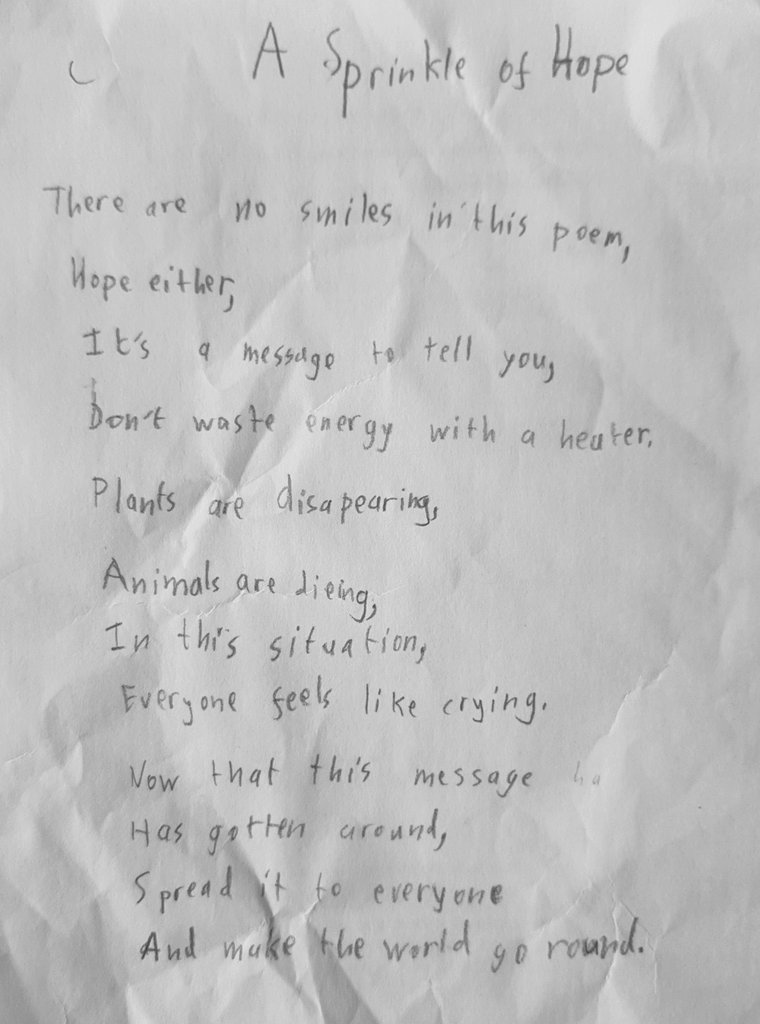 A Sprinkle of Hope
There are no smiles in this poem,
Hope either,
It's a message to tell you,
Don't waste energy with a heater.
Plants are disapearing,
Animals are dieing,
In this situation,
Everyone feels like crying.
Now that this message ha
Has gotten around,
Spread it to everyone
And make the world go round.